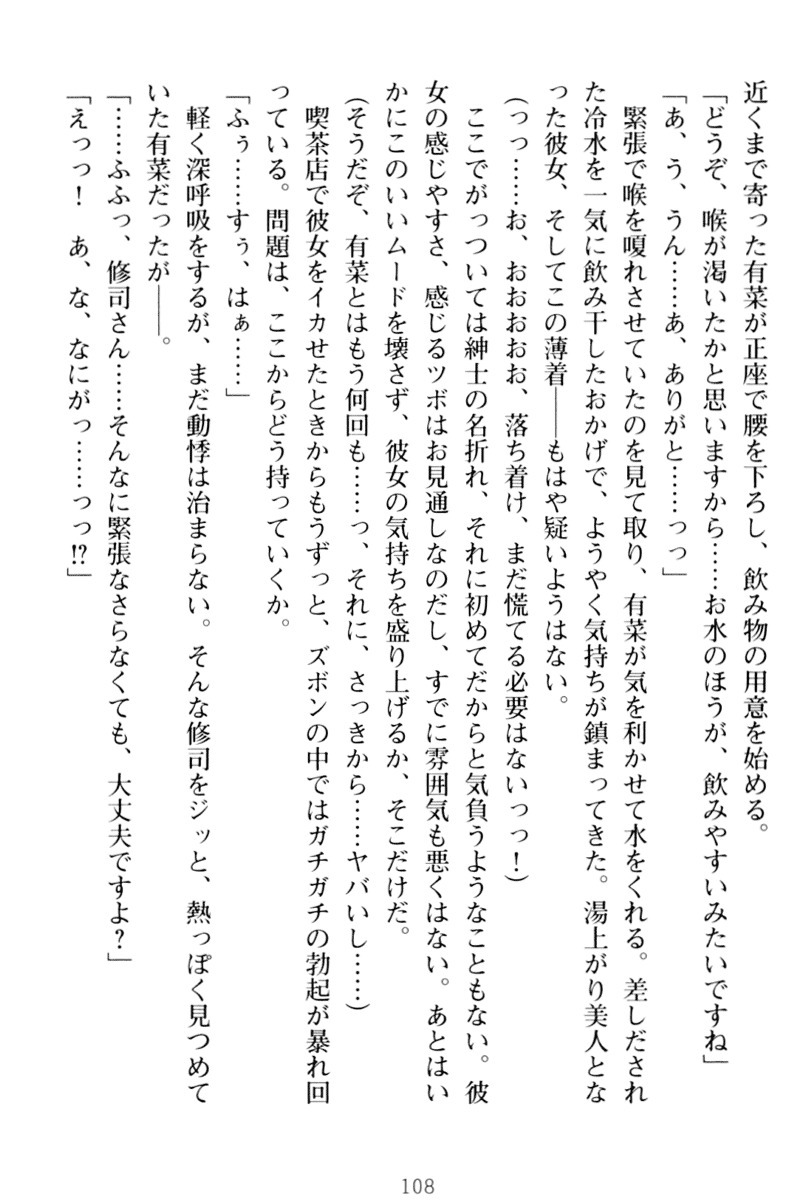 近くまで寄った有菜が正座で腰を下ろし、飲み物の用意を始める。
「どうぞ、喉が渇いたかと思いますから……お水のほうが、飲みやすいみたいですね」
「あ、う、うん……あ、ありがと……っっ」
　緊張で喉を嗄れさせていたのを見て取り、有菜が気を利かせて水をくれる。差しだされ
た冷水を一気に飲み干したおかげで、ようやく気持ちが鎮まってきた。湯上がり美人とな
った彼女、そしてこの薄着――もはや疑いようはない。
(っっ……お、おおおおお、落ち着け、まだ慌てる必要はないっっ！)
　ここでがっついては紳士の名折れ、それに初めてだからと気負うようなこともない。彼
女の感じやすさ、感じるツボはお見通しなのだし、すでに雰囲気も悪くはない。あとはい
かにこのいいムードを壊さず、彼女の気持ちを盛り上げるか、そこだけだ。
(そうだぞ、有菜とはもう何回も……っ、それに、さっきから……ヤバいし……)
　喫茶店で彼女をイカせたときからもうずっと、ズボンの中ではガチガチの勃起が暴れ回
っている。問題は、ここからどう持っていくか。
「ふぅ……すぅ、はぁ……」
　軽く深呼吸をするが、まだ動悸は治まらない。そんな修司をジッと、熱っぽく見つめて
いた有菜だったが――。
「……ふふっ、修司さん……そんなに緊張なさらなくても、大丈夫ですよ？」
「えっっ！　あ、な、なにがっ……っっ!?」
108